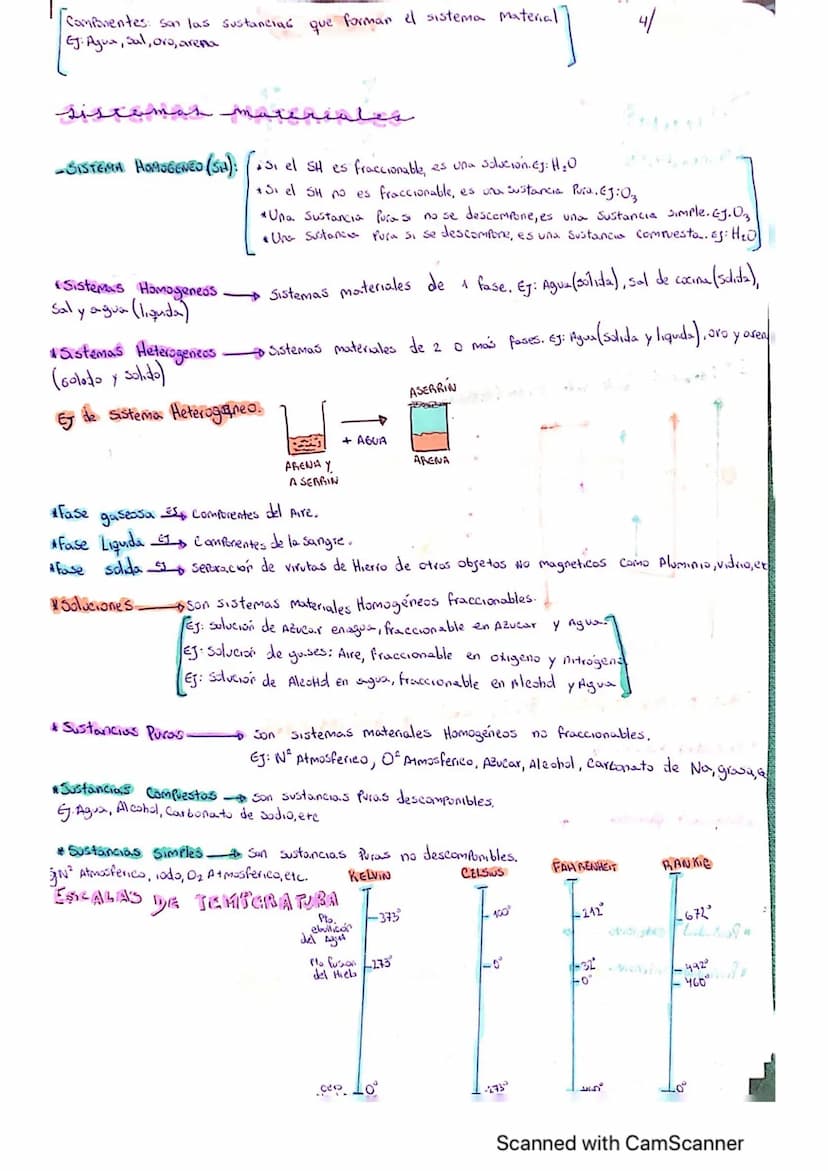 Componentes: son las sustancias que forman el sistema material
EJ: Agua, sal, oro, arena
4/
Sistemas materiales
-SISTEMA HOMOGENEO (SH):
• Si el SH es fraccionable, es una solución. Ej: H₂O
* Si el SH no es fraccionable, es una sustancia Pura. EJ: O₃
* Una sustancia Pura si no se descompone, es una sustancia simple. EJ. O₃
* Una sustancia Pura si se descompone, es una sustancia compuesta. EJ: H₂O
* Sistemas Homogeneos → Sistemas materiales de 1 fase. EJ: Agua (sólida), sal de cocina (solida),
Sal y agua (liquida)
* Sistemas Heterogeneos → Sistemas materiales de 2 o más fases. EJ: Agua (solida y liquida), oro y arena
(solodo y solido)
EJ de sistema Heterogéneo.
+ AGUA
ASERRÍN
ARENA Y
ASERRIN
ARENA
* Fase gaseosa EJ → Componentes del Aire.
* Fase Liquida EJ → Componentes de la sangre.
* Fase solida EJ → Separación de virutas de Hierro de otros objetos no magneticos como Aluminio, vidrio, etc
* Soluciones → Son sistemas materiales Homogéneos fraccionables.
EJ: Solución de Azúcar en agua, fraccionable en Azucar y Agua.
EJ: Solución de gases: Aire, fraccionable en oxigeno y nitrógeno
EJ: Solución de Alcohol en agua, fraccionable en Alcohol y Agua
* Sustancias Puras → Son sistemas materiales Homogéneos no fraccionables.
EJ: N² Atmosferico, O² Atmosferico, Azucar, Alcohol, Carbonato de Na, grasa,
* Sustancias Compuestas → son sustancias Puras descomponibles.
EJ. Agua, Alcohol, Carbonato de sodio, etc
* Sustancias Simples → Son sustancias Puras no descomponibles.
N² Atmosférico, iodo, O₂ Atmosférico, etc.
ESCALAS DE TEMPERATURA
KELVIN
CELSIUS
FAHRENHEIT
RANKIE
Pto. ebullición del Agua
373°
100°
212°
672°
Pto fusion del Hielo
273°
0°
32°
492°
0°
460°
0°
-273°
0°
Scanned with CamScanner